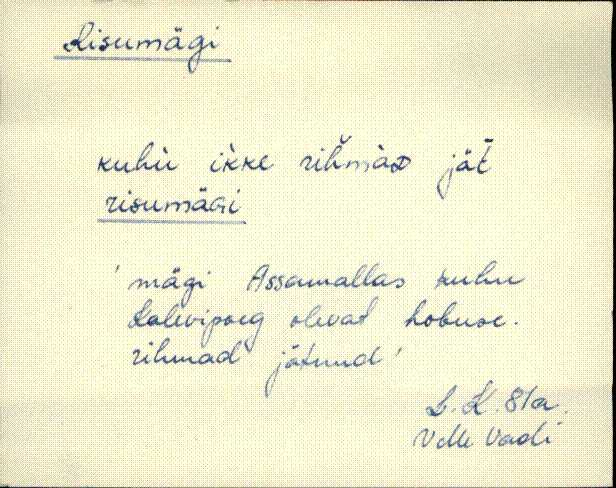 Risumägi
kuhù ikke rihmàᴅ jät̄
risumäɢi
'mägi Assamallas kuhu
Kalevipoeg olevat hobuse-
rihmad jätnud'
L.K. 81a.
Velle Vadi